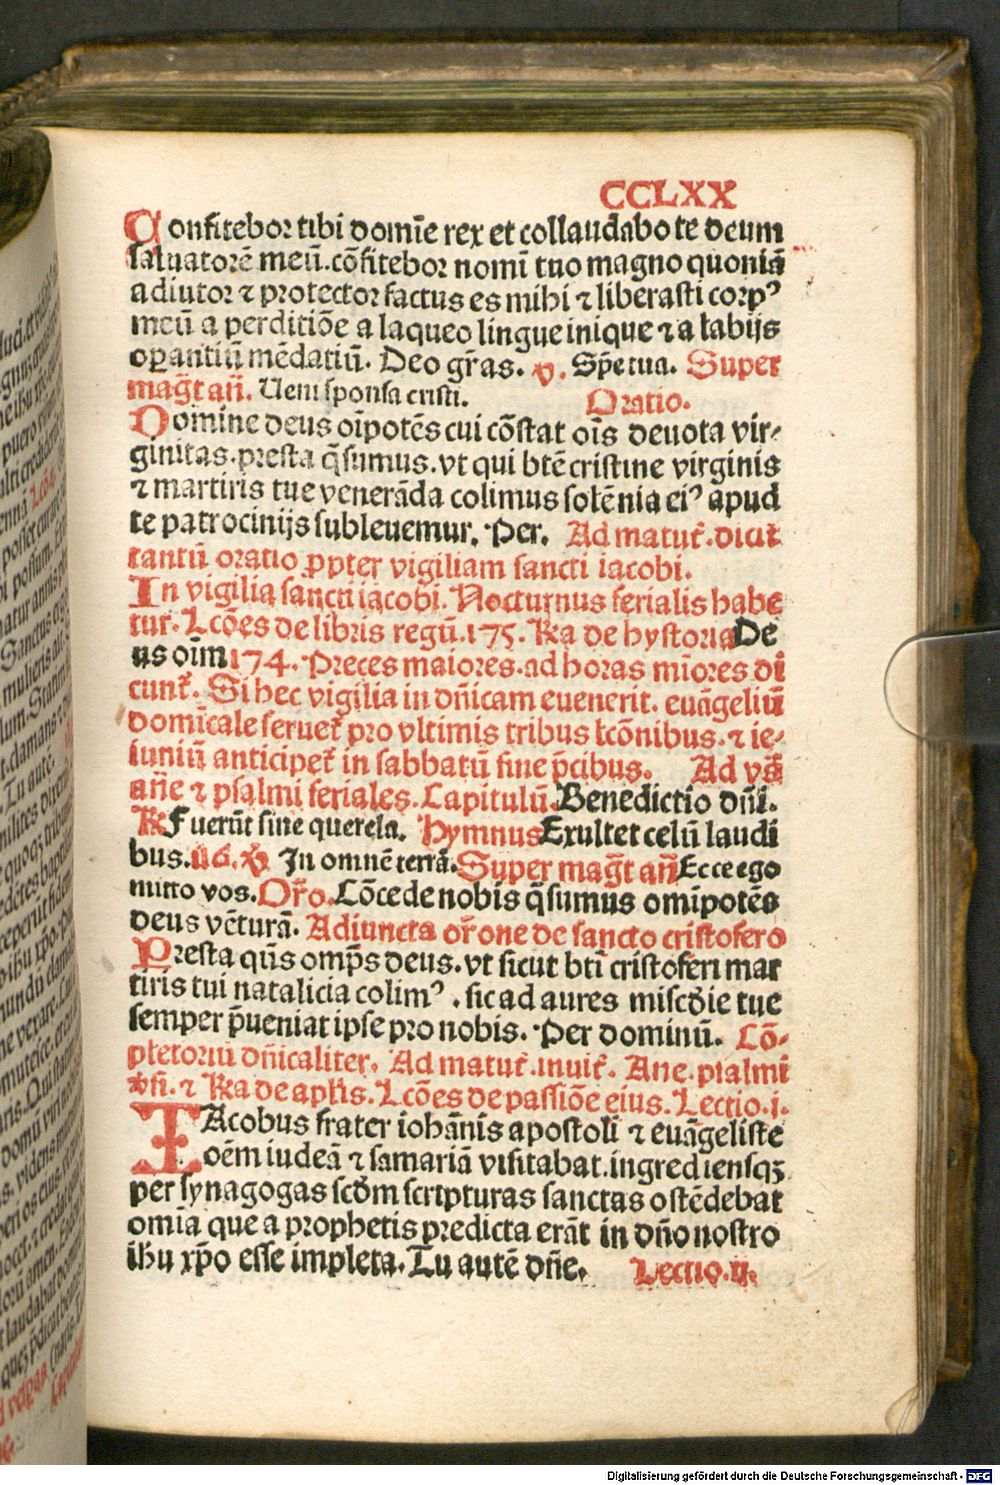 CCLXX
Confitebor tibi domīe rex et collaudabo te deum
saluatorē meū.cōfitebor nomī tuo magno quoniā
adiutor ⁊ protector factus es mihi ⁊ liberasti corpꝰ
meū a perditiōe a laqueo lingue inique ⁊ a labijs
oꝑantiū mēdatiū. Deo gr̄as. ꝟ. Spēe tua. Super
maḡt an̄. Ueni sponsa cristi. Oratio.
Domine deus oīpotēs cui cōstat oīs deuota vir⸗
ginitas.presta q̄sumus.vt qui btē cristine virginis
⁊ martiris tue venerāda colimus solēnia eiꝰ apud
te patrocinijs subleuemur. Per. Ad matut̄.dicit
tantū oratio ꝓpter vigiliam sancti iacobi.
In vigilia sancti iacobi. Nocturnus ferialis habe
tur. Lcōes de libris regū.175. Ra de hystoria De
us oīm 174. Preces maiores.ad horas miores di
cunt̄. Si hec vigilia in dn̄icam euenerit. euāgeliū
domīcale seruet̄ pro vltimis tribus lcōnibus.⁊ ie⸗
iuniū anticipet̄ in sabbatū sine p̄cibus. Ad vs̄ā
an̄e ⁊ psalmi feriales. Capitulū. Benedictio dn̄i.
℟ Fuerūt sine querela. Hymnus Exultet celū laudi
bus.116. ꝟ In omnē terrā. Super maḡt an̄ Ecce ego
mitto vos. Or̄o. Cōcede nobis q̄sumus omīpotēs
deus vēturā. Adiuncta or̄one de sancto cristofero
Presta qūs omp̄s deus.vt sicut btī cristoferi mar
tiris tui natalicia colimꝰ . sic ad aures misc̄die tue
semper p̄ueniat ipse pro nobis. Per dominū. Cō⸗
pletoriū dn̄icaliter. Ad matut̄.inuit̄. Ane.psalmi
vs̄i. ⁊ Ra de apl̄is. Lcōes de passiōe eius. Lectio.i.
IAcobus frater iohānis apostoli ⁊ euāgeliste
oēm iudeā ⁊ samariā visitabat.ingrediensqꝫ
per synagogas scd̄m scripturas sanctas ostēdebat
omīa que a prophetis predicta erāt in dn̄o nostro
ihu xp̄o esse impleta. Tu autē dn̄e. Lectio.ij.
Digitalisierung gefördert durch die Deutsche Forschungsgemeinschaft - DFG